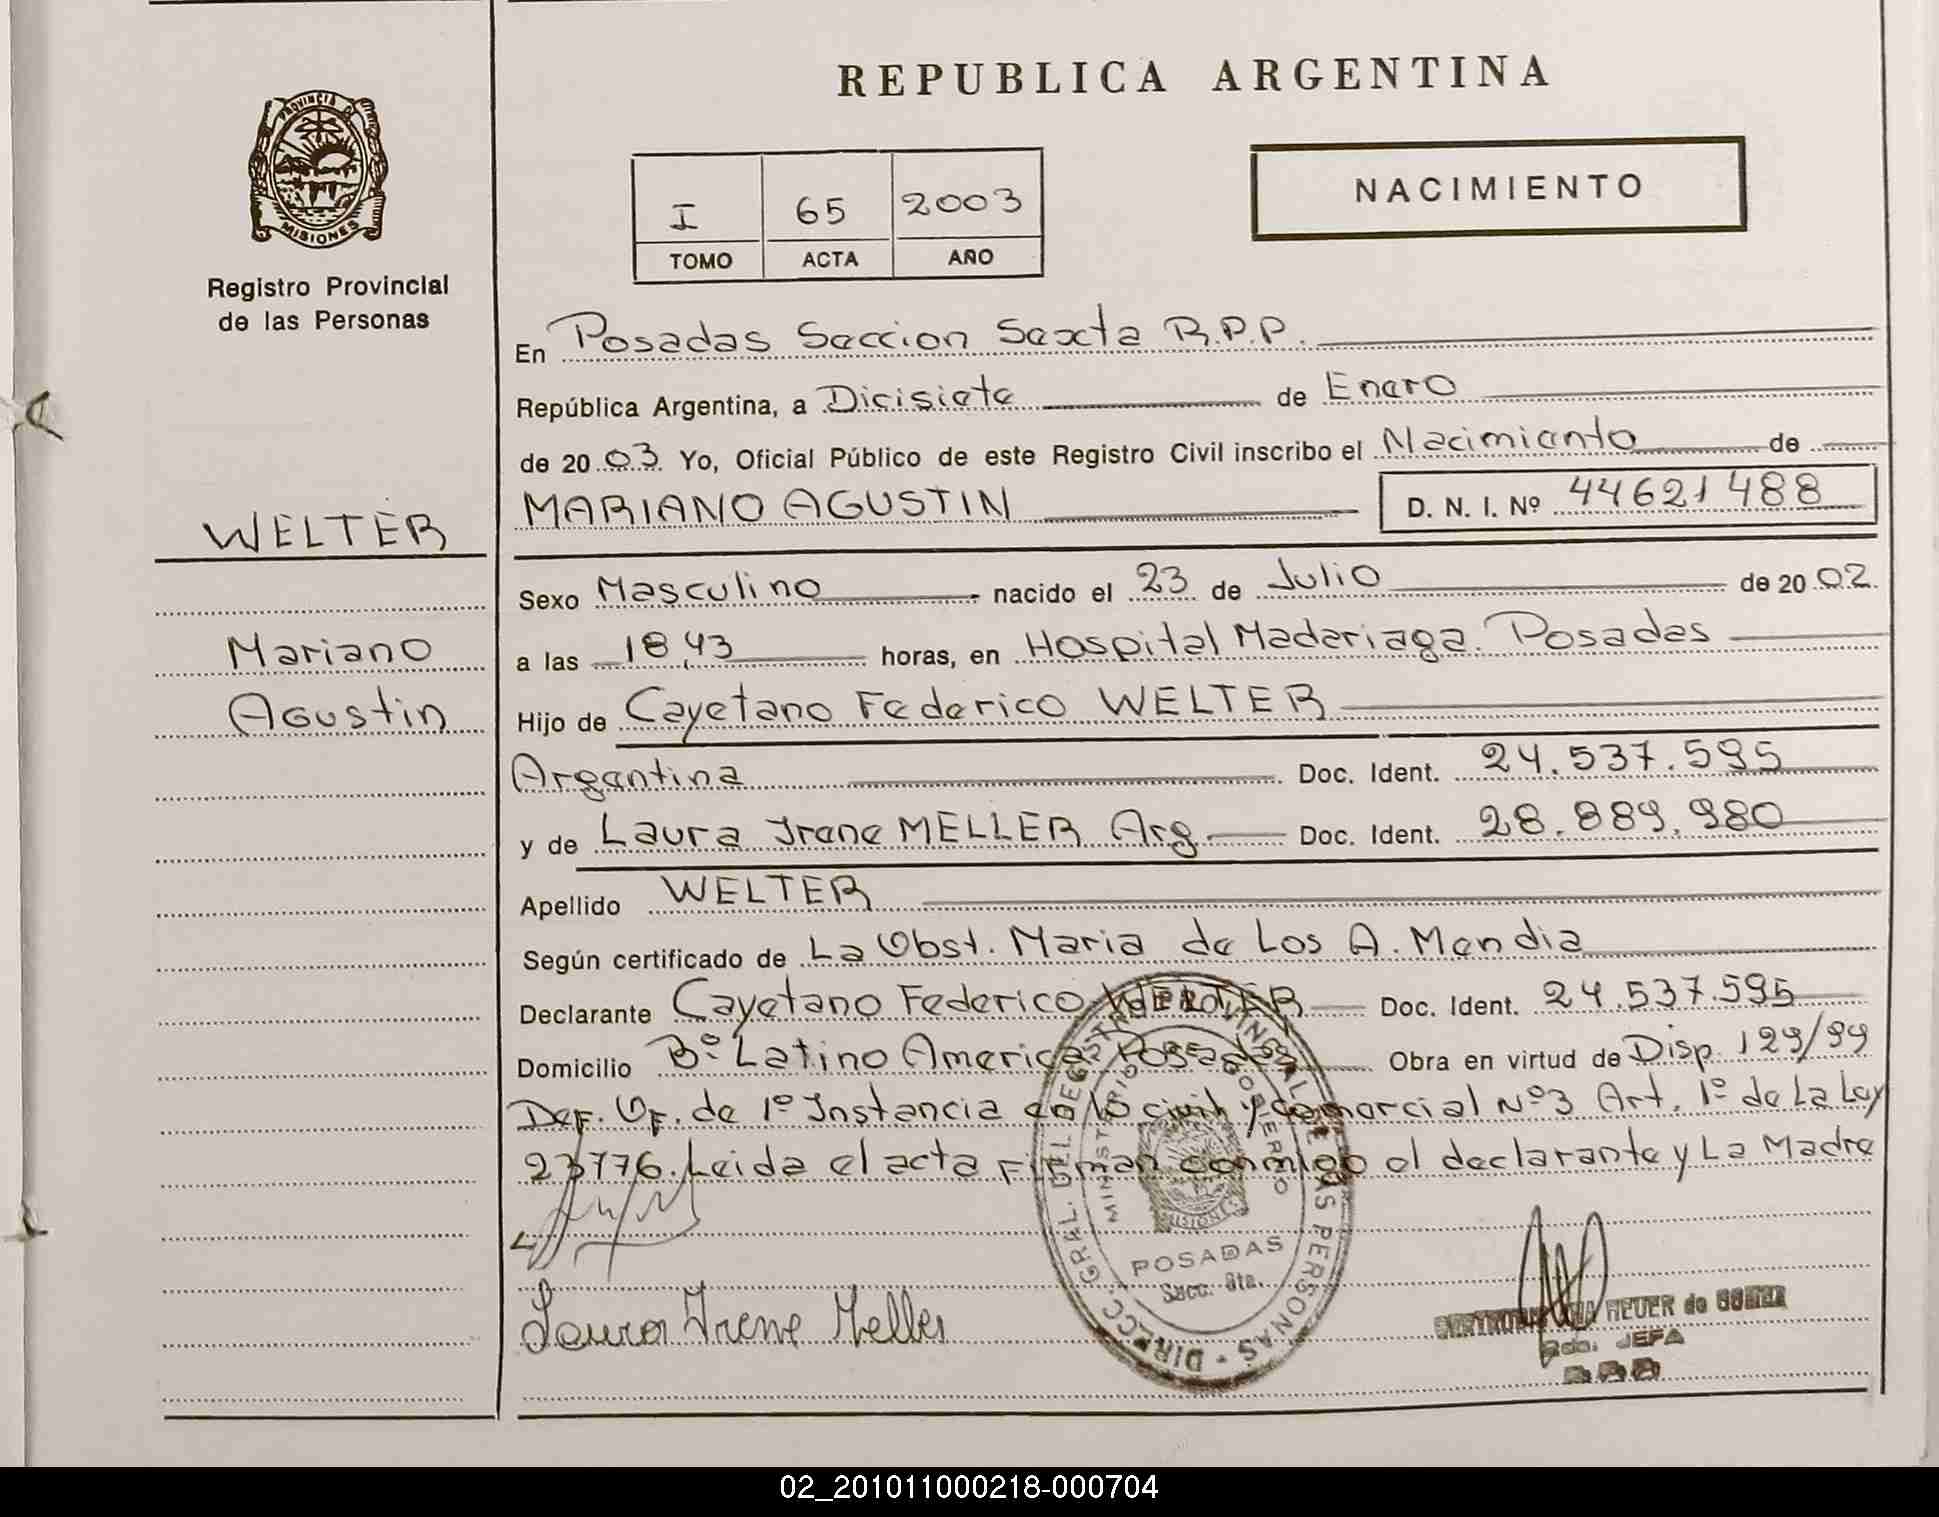 REPUBLICA ARGENTINA
PROVINCIA DE
MISIONES
Registro Provincial
de las Personas
NACIMIENTO
I 65 2003
TOMO ACTA AÑO
En Posadas Seccion Sexta R.P.P.
República Argentina, a Dicisiete de Enero
de 2003 Yo, Oficial Público de este Registro Civil inscribo el Nacimiento de
MARIANO AGUSTIN D. N. I. Nº 44621488
WELTER
Mariano
Agustin
Sexo Masculino nacido el 23 de Julio de 2002.
a las 18,43 horas, en Hospital Madariaga. Posadas
Hijo de Cayetano Federico WELTER
Argentina Doc. Ident. 24.537.595
y de Laura Irene MELLER Arg. Doc. Ident. 28.889.980
Apellido WELTER
Según certificado de La Obst. Maria de Los A. Mendia
Declarante Cayetano Federico WELTER Doc. Ident. 24.537.595
Domicilio Bº Latino America Posadas Obra en virtud de Disp. 129/99
Def. Of. de 1º Instancia en lo civil y comercial Nº3 Art. 1º de La Ley
23776. Leida el acta Firman conmigo el declarante y La Madre
Laura Irene Meller
DIRECC. GRAL. DEL REGISTRO PROVINCIAL DE LAS PERSONAS
MINISTERIO DE GOBIERNO
MISIONES
POSADAS
Secc. 6ta.
HEUER de GOMEZ
2da. JEFA
02_201011000218-000704